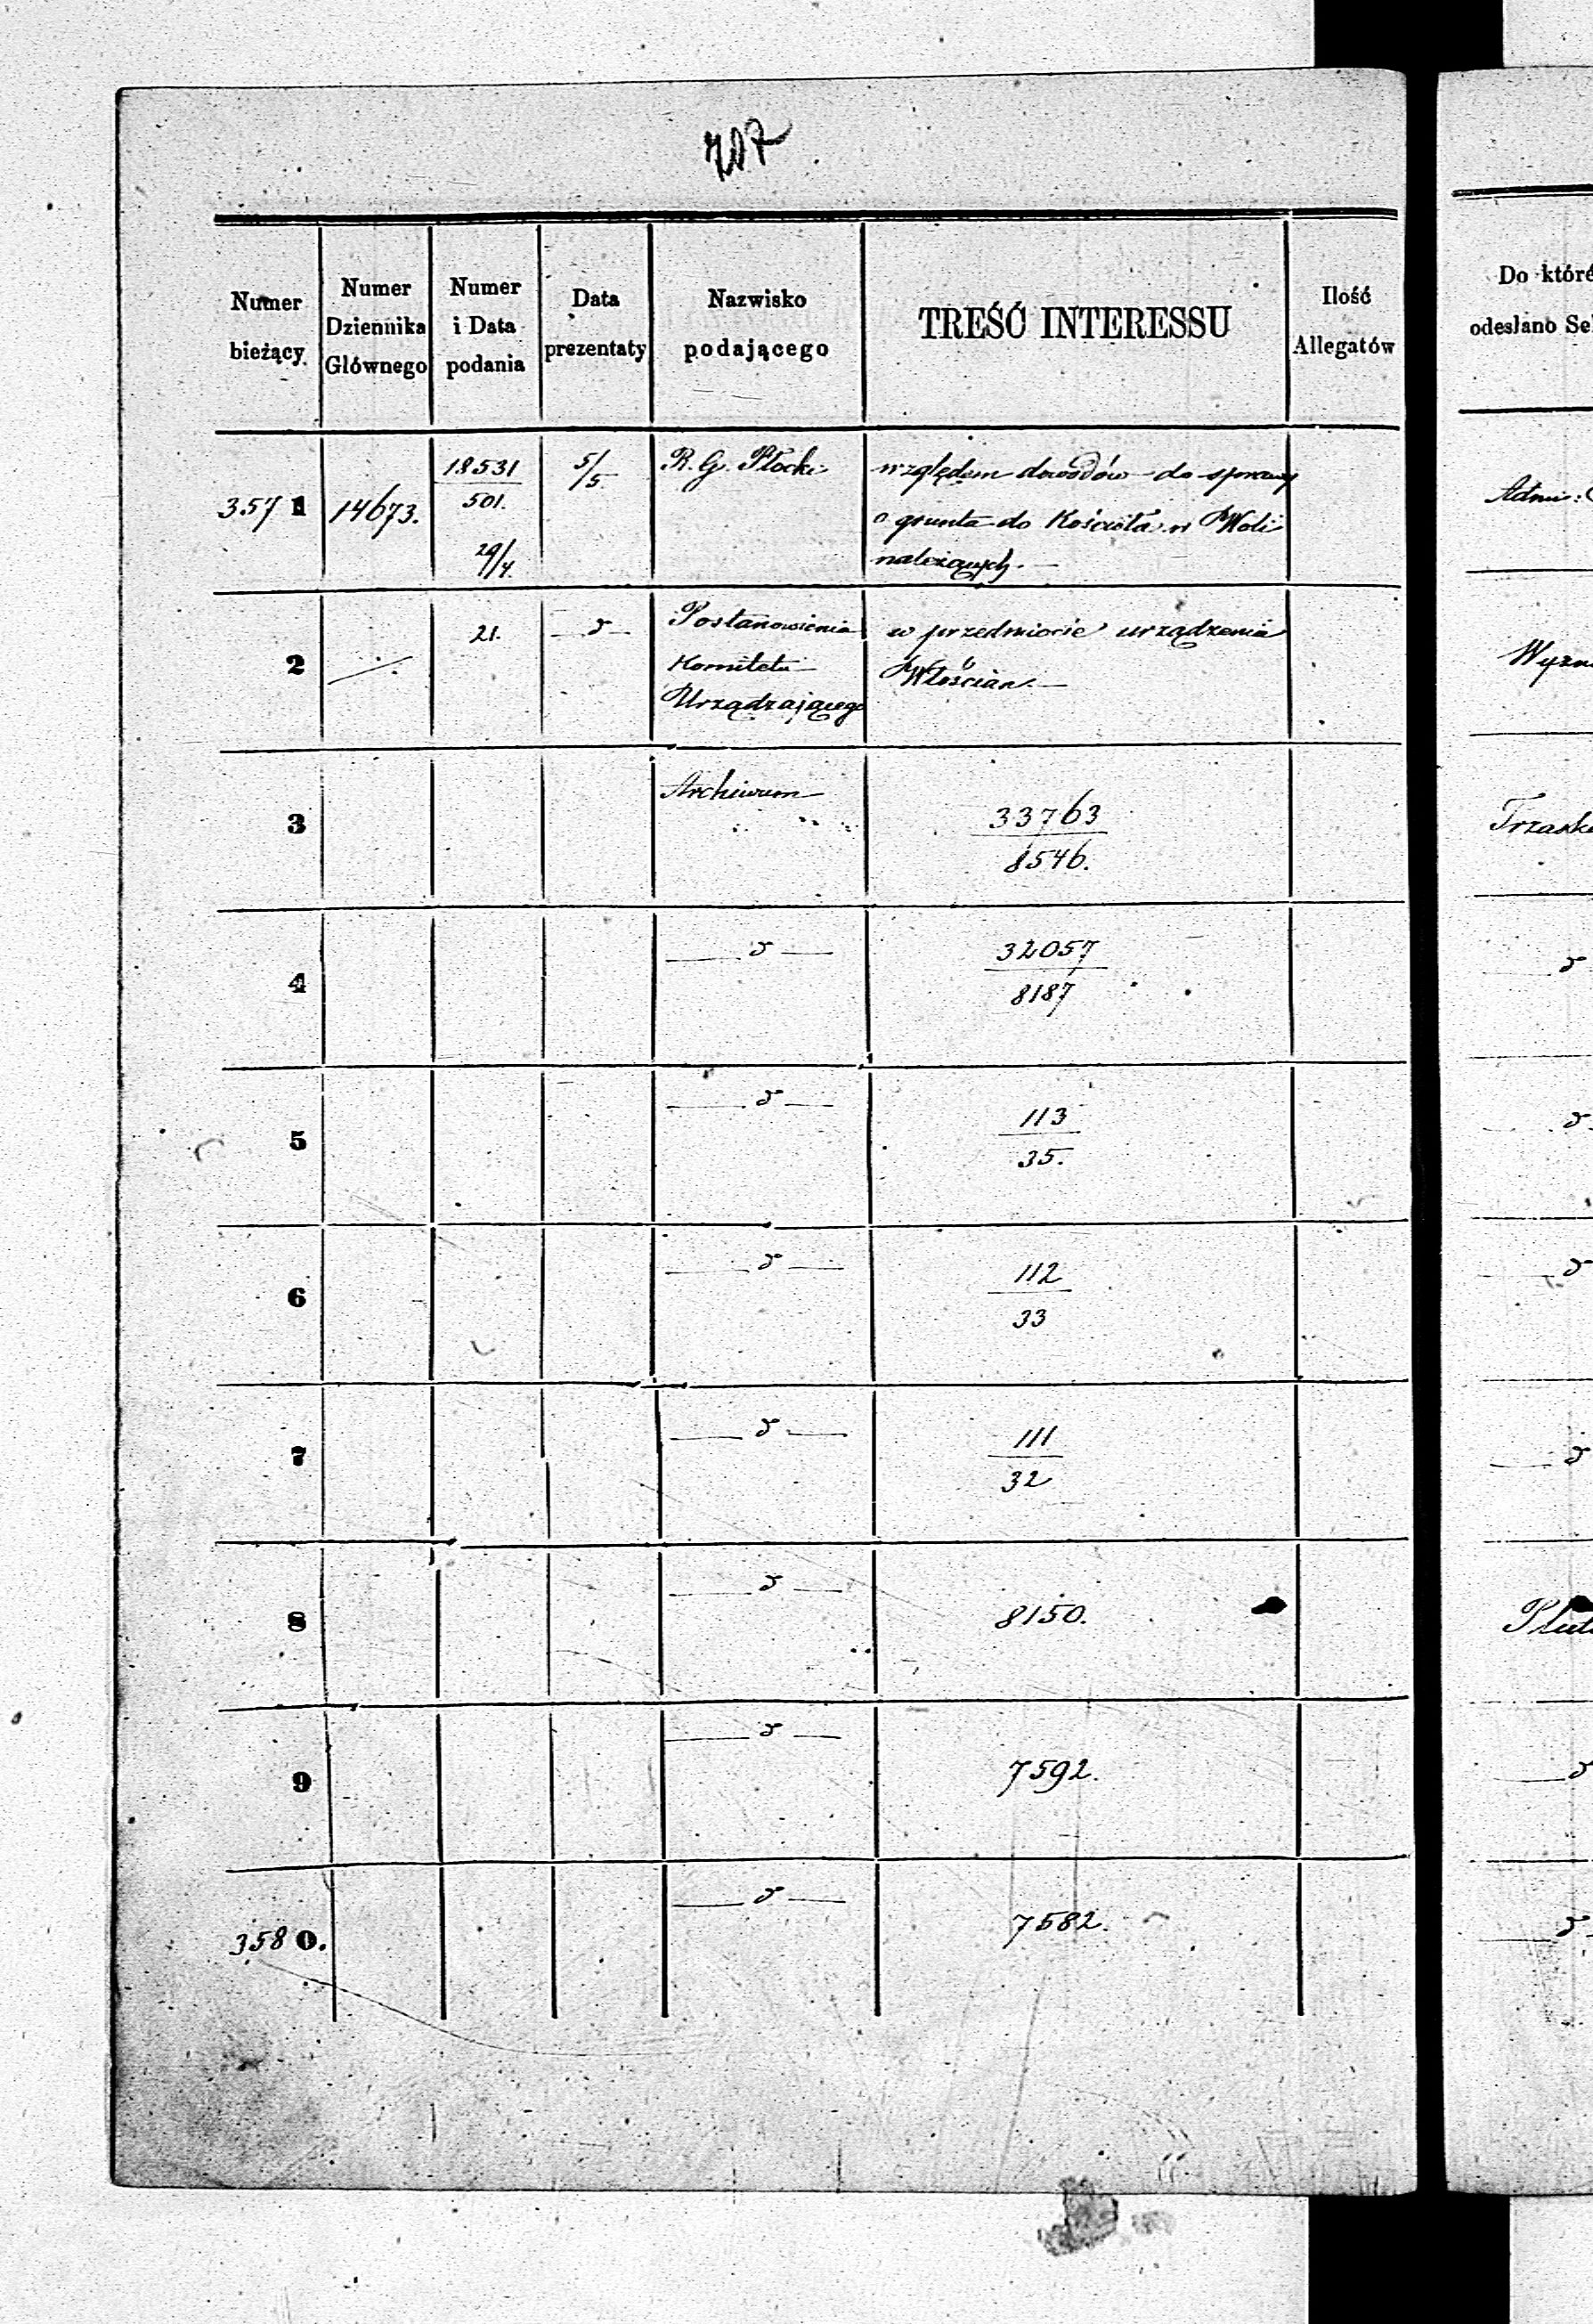 707
Numer bieżący
Numer Dziennika Głównego
Numer i Data podania
Data prezentaty
Nazwisko podającego
TREŚĆ INTERESSU
Ilość Allegatów
Do któré
odesłano Se
3571 14673. 18531/501. 29/4. 5/5 R. G. Płocki względem dowodów do sprawy
o grunta do Kościoła w Woli
należących.
Admi: 
2 21. d Postanowienia w przedmiocie urządzenia
Komitetu Włościan.
Urządzającego
3 Archiwum 33763
8546.
4 d 32057
8187
d
5 d 113
35.
d
6 d 112
33
d
7 d 111
32
d
8 d 8150.
9 d 7592.
d
3580. d 7582.
d